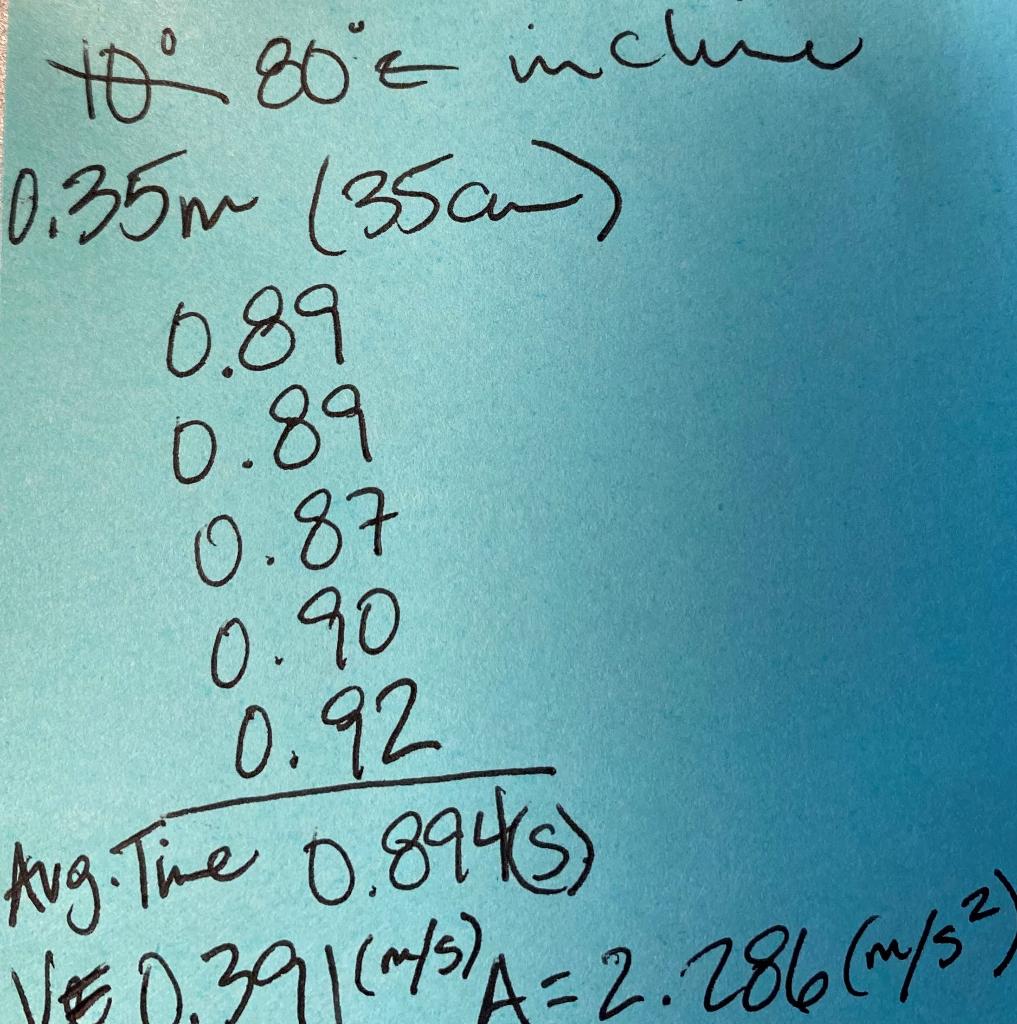 10° 80° ← incline
0.35m (35cm)
0.89
0.89
0.87
0.90
0.92
Avg. Time 0.894(s)
V= 0.391(m/s) A=2.286(m/s²)